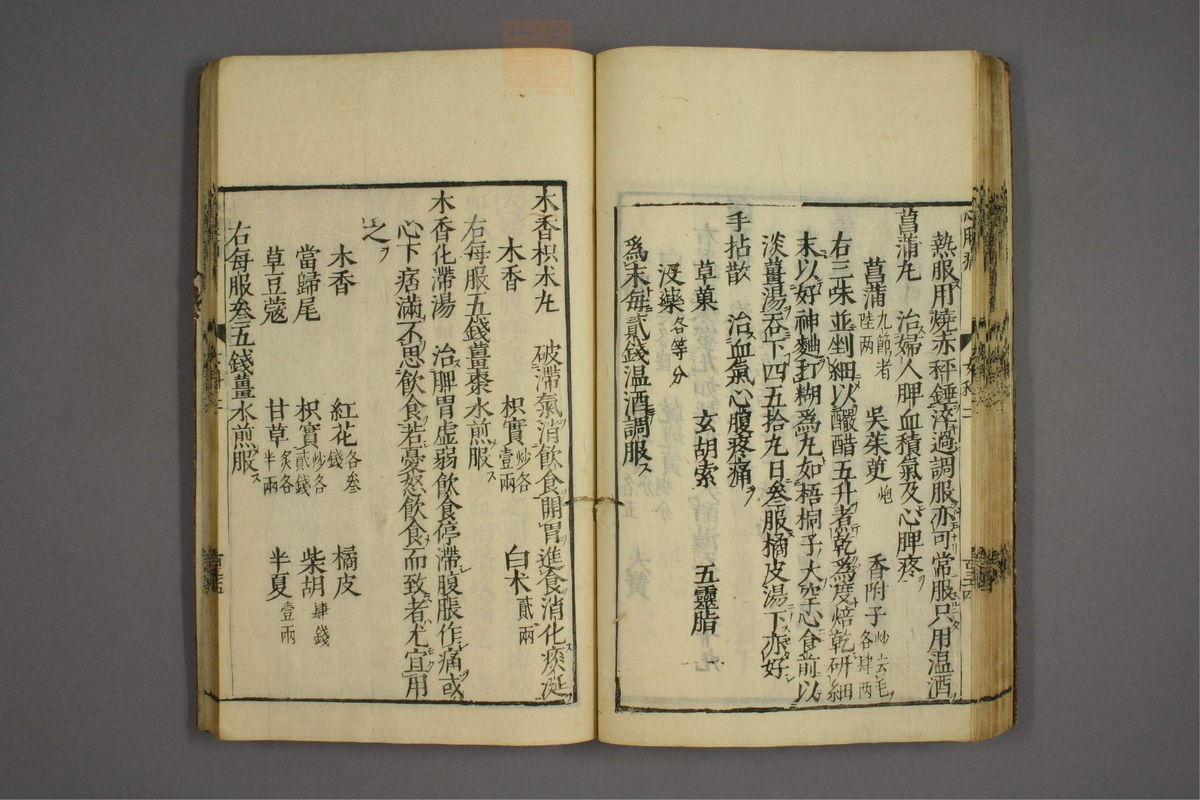 熱服用燒赤秤錘淬過調服亦可常服只用温酒
菖蒲丸　治婦人脾血積氣及心脾疼
菖蒲九節者陸两　吳茱萸炮　香附子炒去毛各肆两
右三味並剉細以釅醋五升煮乾爲度焙乾研細
末以好神麯打糊爲丸如梧桐子大空心食前以
淡薑湯吞下四五拾丸日叁服橘皮湯下亦好
手拈散　治血氣心腹疼痛
草菓　玄胡索　五靈脂
沒藥各等分
爲末每貳錢温酒調服
木香枳朮丸　破滯氣消飲食開胃進食消化痰涎
木香　枳實炒各壹兩　白朮貳兩
右每服五錢薑棗水煎服
木香化滯湯　治脾胃虛弱飲食停滯腹脹作痛或
心下痞滿不思飲食若憂怒飲食而致者尤宜用
之
木香　紅花各叁錢　橘皮
當歸尾　枳實炒各貳錢　柴胡肆錢
草豆蔻　甘草炙各半兩　半夏壹兩
右每服叁五錢薑水煎服